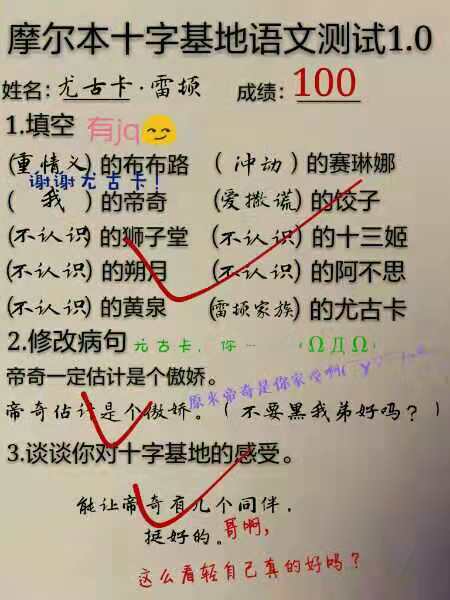 摩尔本十字基地语文测试1.0
姓名:尤古卡·雷顿 成绩:100
1.填空 有jq
(重情义)的布布路 (冲动)的赛琳娜
谢谢尤古卡!
(我)的帝奇 (爱撒谎)的饺子
(不认识)的狮子堂 (不认识)的十三姬
(不认识)的朔月 (不认识)的阿不思
(不认识)的黄泉 (雷顿家族)的尤古卡
2.修改病句 尤古卡,你… (ΩДΩ)
帝奇一定估计是个傲娇。
原来帝奇是你家受啊
帝奇估计是个傲娇。(不要黑我弟好吗?)
3.谈谈你对十字基地的感受。
能让帝奇有几个同伴,
挺好的。哥啊,
这么看轻自己真的好吗?